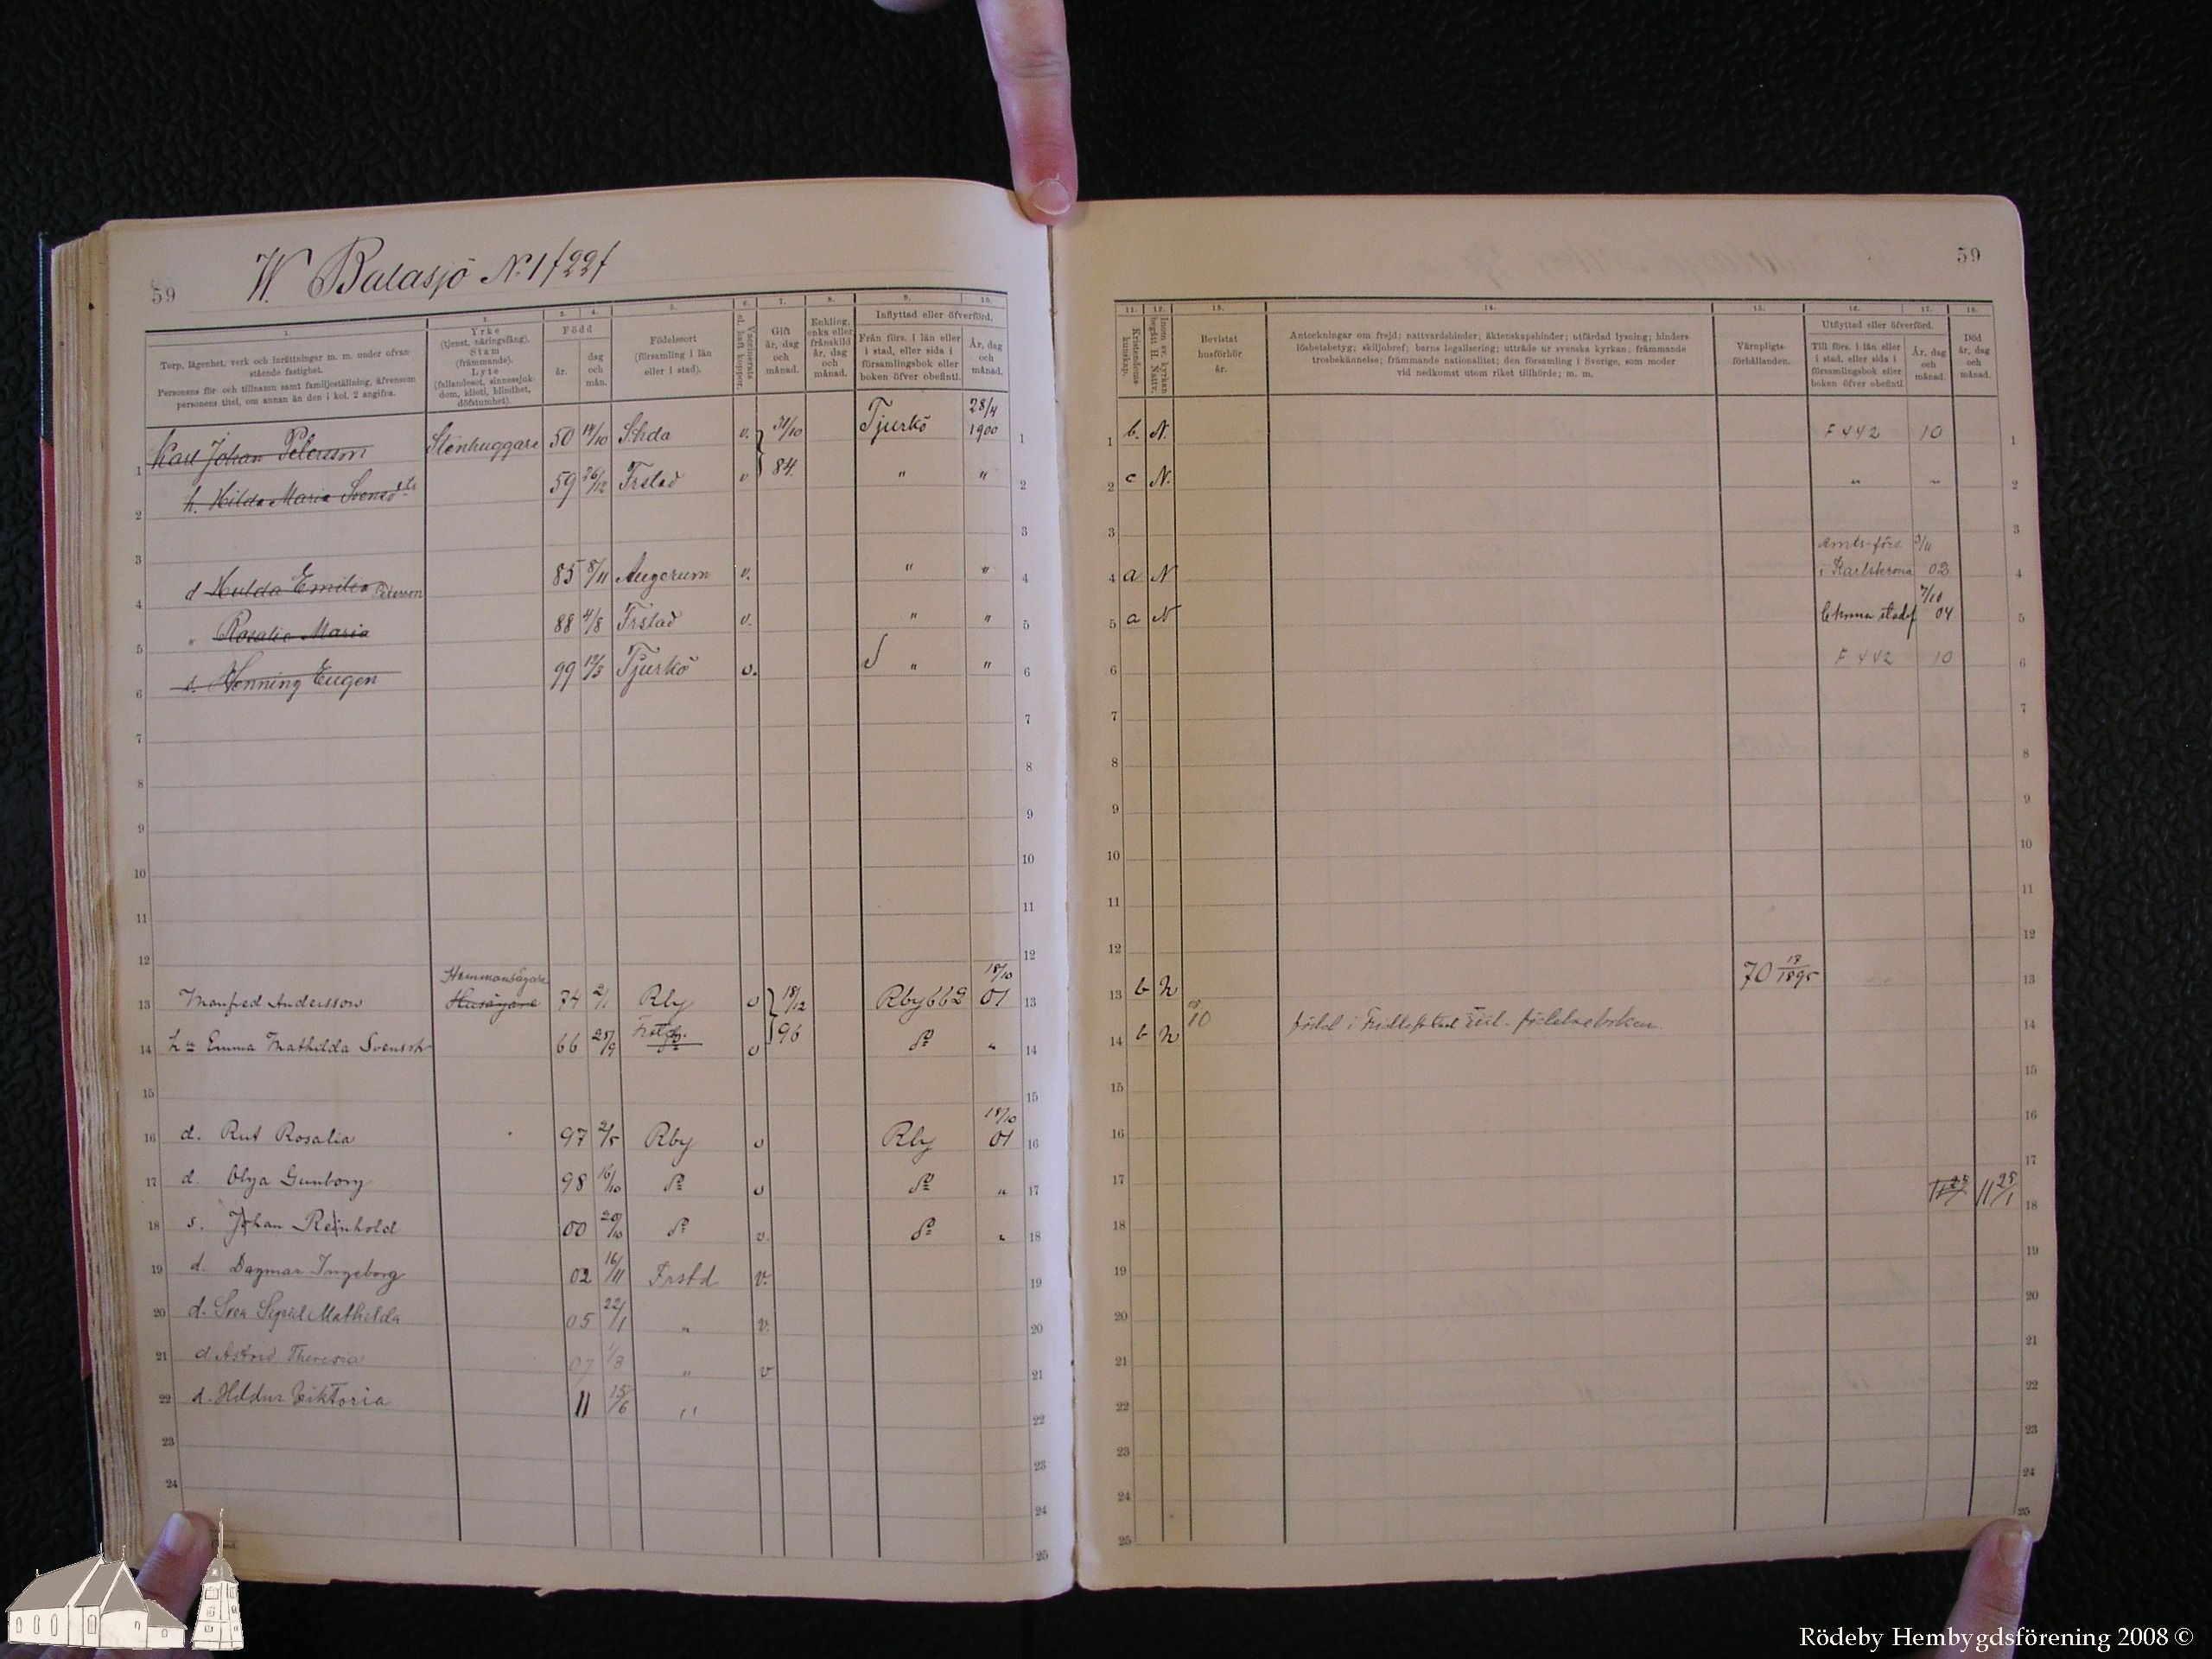 59
W. Balasjö No 1 f 22 f
1. 2. 3. 4. 5. 6. 7. 8. 9. 10.
Torp, lägenhet, verk och inrättningar m. m. under ofvan-
stående fastighet.
Personens för- och tillnamn samt familjeställning, äfvensom
personens titel, om annan än den i kol. 2 angifna.
Yrke
(tjenst, näringsfång).
Stam
(främmande).
Lyte
(fallandesot, sinnessjuk-
dom, idioti, blindhet,
döfstumhet).
Född
år.
dag
och
mån.
Födelseort
(församling i län
eller i stad).
Vaccinerats
el. haft koppor.
Gift
år, dag
och
månad.
Enkling,
enka eller
frånskild
år, dag
och
månad.
Inflyttad eller öfverförd.
Från förs. i län eller
i stad, eller sida i
församlingsbok eller
boken öfver obefintl.
År, dag
och
månad.
1 Karl Johan Petersson Stenhuggare 50 14/10 v. 31/10 Tjurkö 28/4 1900 1
2 h. Hilda Maria Svensd:tr 59 26/12 Frstad v 84. " " 2
3 3
4 d Hulda Emilia Petersson 85 8/11 Augerum v. " " 4
5 " Rosalie Maria 88 4/8 Frstad v. " " 5
6 s. Henning Eugen 99 12/3 Tjurkö v. " " 6
7 7
8 8
9 9
10 10
11 11
12 12
Hemmansägare
13 Manfred Andersson Husägare 74 2/1 Rby v 18/12 Rby 662 18/10 01 13
14 h:u Emma Mathilda Svensdr 66 28/9 Frstd. v 96 D:o " 14
15 15
16 d. Rut Rosalia 97 2/5 Rby v Rby 18/10 01 16
17 d. Olga Gunborg 98 16/10 D:o v D:o " 17
18 s. Johan Reinhold 00 20/10 D:o v. D:o " 18
19 d. Dagmar Ingeborg 02 16/11 Frstd v. 19
20 d. Svea Sigrid Mathilda 05 22/1 " v. 20
21 d Astrid Theresia 07 1/3 " v 21
22 d. Hildur Viktoria 11 15/6 " 22
23 23
24 24
25
59
11. 12. 13. 14. 15. 16. 17. 18.
Kristendoms-
kunskap.
Inom sv. kyrkan
begått H. Nattv.
Bevistat
husförhör
år.
Anteckningar om frejd; nattvardshinder; äktenskapshinder; utfärdad lysning; hinders-
löshetsbetyg; skiljobref; barns legalisering; utträde ur svenska kyrkan; främmande
trosbekännelse; främmande nationalitet; den församling i Sverige, som moder
vid nedkomst utom riket tillhörde; m. m.
Värnpligts-
förhållanden.
Utflyttad eller öfverförd.
Till förs. i län eller
i stad, eller sida i
församlingsbok eller
boken öfver obefintl.
År, dag
och
månad.
Död
år, dag
och
månad.
1 b. N. F 442 10 1
2 c N. " " 2
3 3
4 a N Amts-förs. i Karlskrona 3/11 02 4
5 a N C.krona stadsf 7/10 04 5
6 F 442 10 6
7 7
8 8
9 9
10 10
11 11
12 12
13 b N 70 18/1895 13
14 b N 10 född i Fridlefstad enl. födelseboken. 14
15 15
16 16
17 17
18 11 25/1 11 25/1 18
19 19
20 20
21 21
22 22
23 23
24 24
25 25
Rödeby Hembygdsförening 2008 ©